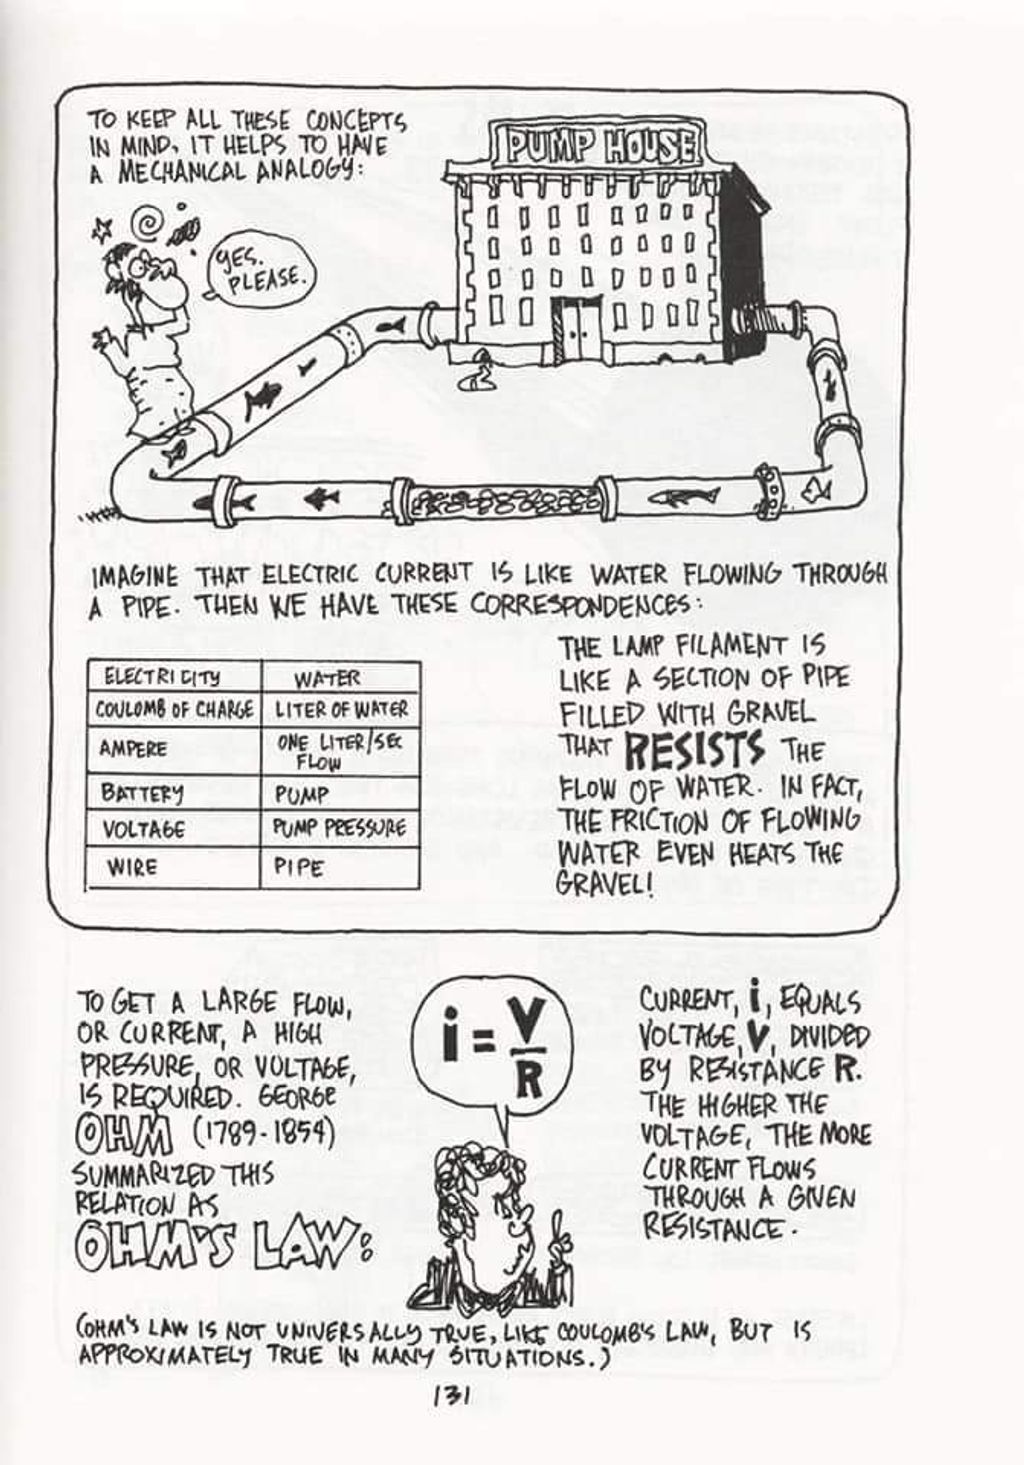 TO KEEP ALL THESE CONCEPTS
IN MIND, IT HELPS TO HAVE
A MECHANICAL ANALOGY:
PUMP HOUSE
YES.
PLEASE.
IMAGINE THAT ELECTRIC CURRENT IS LIKE WATER FLOWING THROUGH
A PIPE. THEN WE HAVE THESE CORRESPONDENCES:
ELECTRICITY WATER
COULOMB OF CHARGE LITER OF WATER
AMPERE ONE LITER/SEC
FLOW
BATTERY PUMP
VOLTAGE PUMP PRESSURE
WIRE PIPE
THE LAMP FILAMENT IS
LIKE A SECTION OF PIPE
FILLED WITH GRAVEL
THAT RESISTS THE
FLOW OF WATER. IN FACT,
THE FRICTION OF FLOWING
WATER EVEN HEATS THE
GRAVEL!
TO GET A LARGE FLOW,
OR CURRENT, A HIGH
PRESSURE, OR VOLTAGE,
IS REQUIRED. GEORGE
OHM (1789-1854)
SUMMARIZED THIS
RELATION AS
OHM'S LAW:
i = V
R
CURRENT, i, EQUALS
VOLTAGE, V, DIVIDED
BY RESISTANCE R.
THE HIGHER THE
VOLTAGE, THE MORE
CURRENT FLOWS
THROUGH A GIVEN
RESISTANCE.
(OHM'S LAW IS NOT UNIVERSALLY TRUE, LIKE COULOMB'S LAW, BUT IS
APPROXIMATELY TRUE IN MANY SITUATIONS.)
131